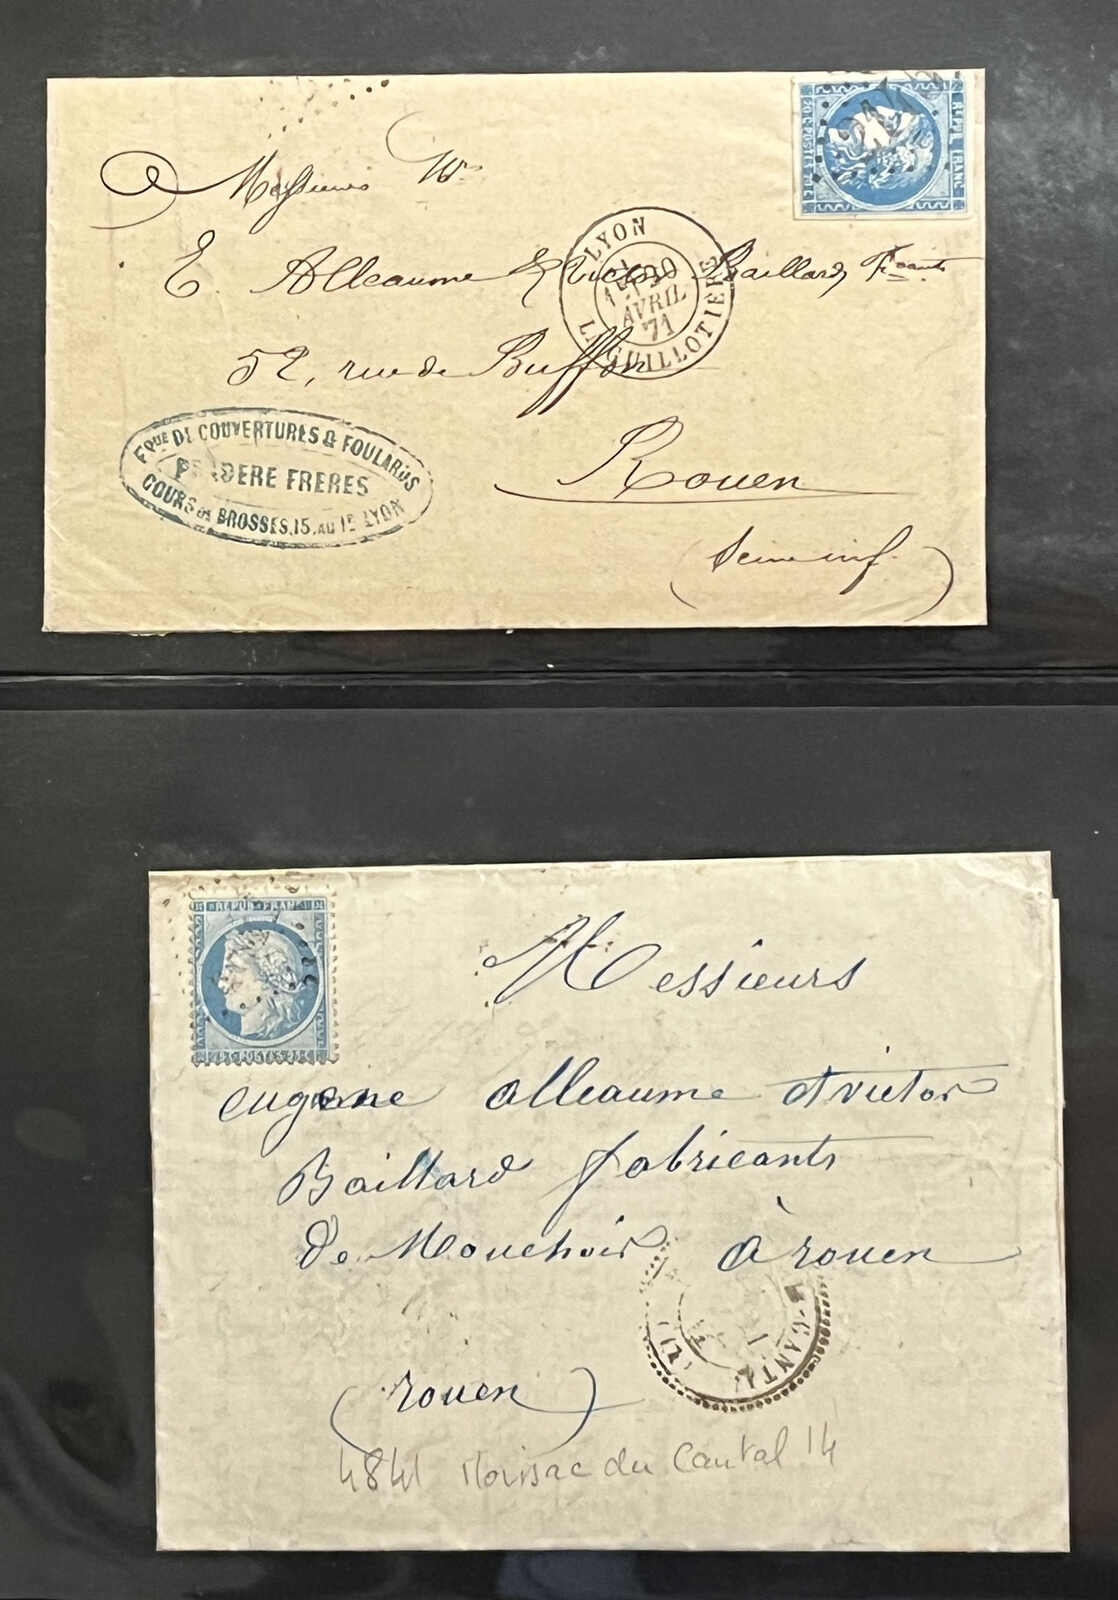 REPUB FRANC
20 C POSTES 20 C
Messieurs
E. Alleaume & Victor Baillard, Fcants
52, rue de Buffon
Rouen
(Seine inf.)
LYON
LA GUILLOTIERE
AVRIL
71
Fque DE COUVERTURES & FOULARDS
FRERES
COURS DE BROSSES, 15, AU 1er LYON
REPUB FRANC
25 C POSTES 25 C
Messieurs
eugene alleaume et victor
Baillard fabricants
de Mouchoir à rouen
(rouen)
4841 Moissac du Cantal 14